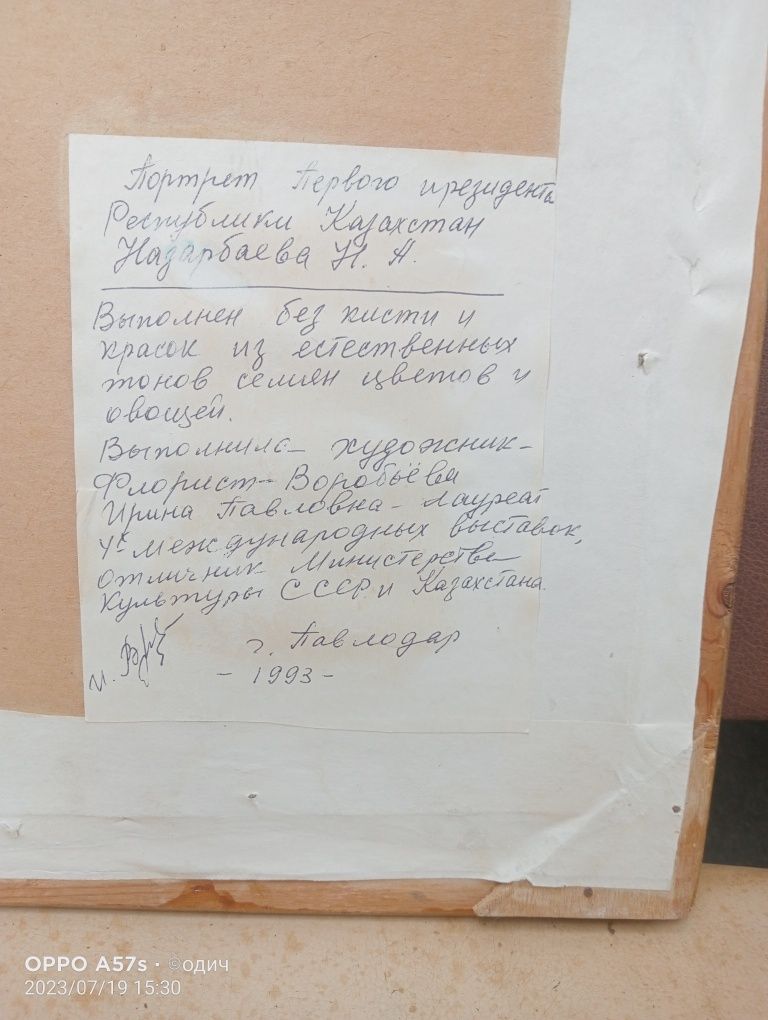 Портрет Первого президента
Республики Казахстан
Назарбаева Н. А.
Выполнен без кисти и
красок из естественных
тонов семян цветов и
овощей.
Выполнила художник-
Флорист- Воробьёва
Ирина Павловна- Лауреат
4х международных выставок,
отличник Министерства
культуры СССР и Казахстана.
г. Павлодар
- 1993 -
OPPO A57s · ©одич
2023/07/19 15:30